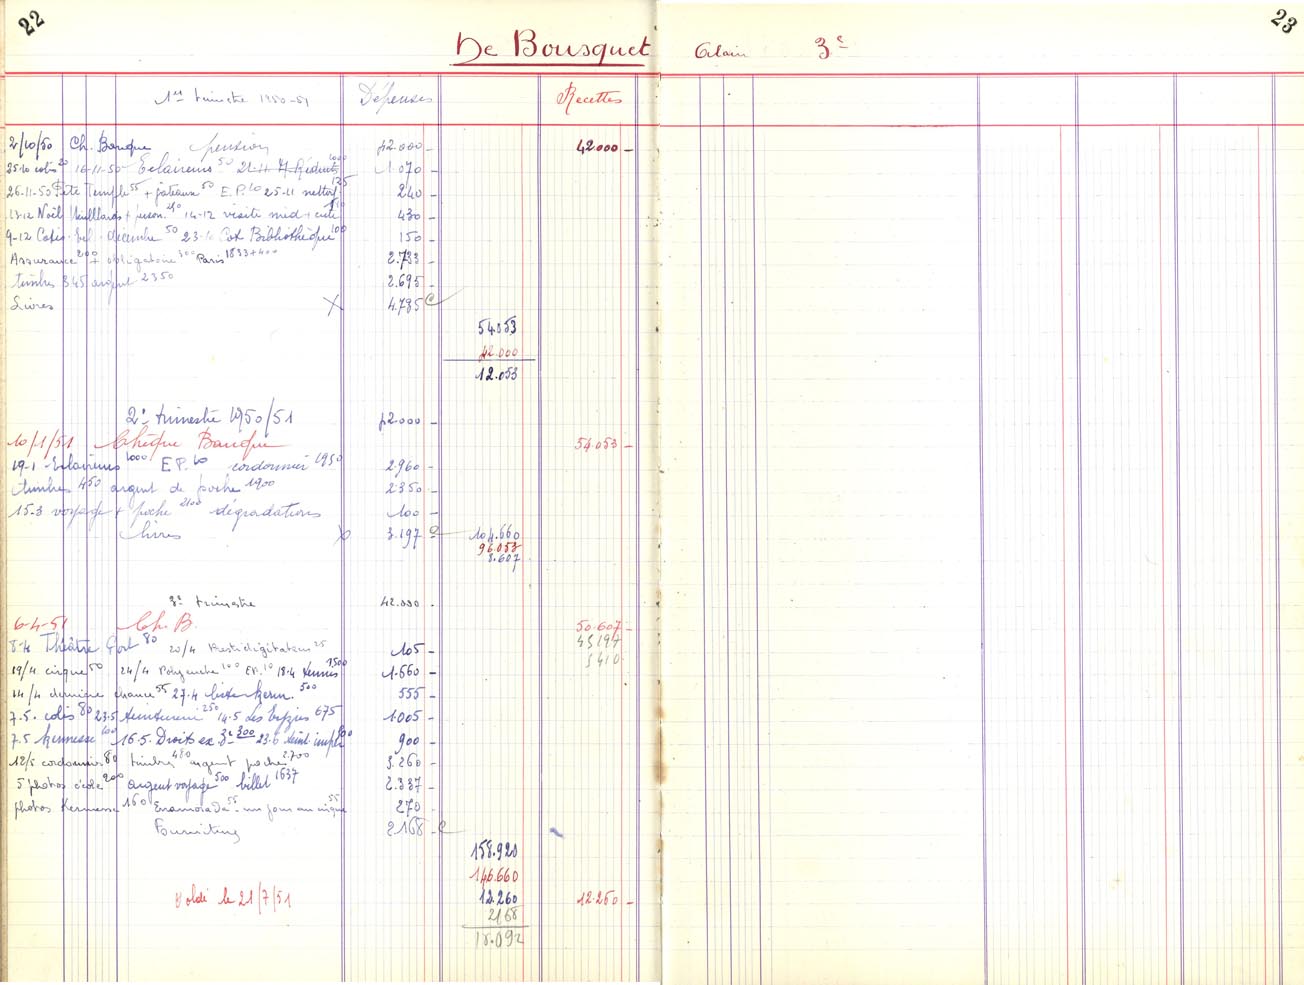 22
23
De Bousquet Alain 3e
1er trimestre 1950-51 Dépenses Recettes
2/10/50 Ch. Banque pension 42.000 - 42000 -
25-10 cotis 20 16-11-50 Eclaireurs 50 21-11 1000 1.070 -
26-11-50 Fête Temple 55 + gateaux 50 E.P. 10 25-11 125 240 -
Noël + 14-12 visite med + 430 -
9-12 décembre 50 23-10 Cot Bibliothèque 100 150 -
Assurance 200 + obligatoire 300 Paris 1833+400 2.733 -
timbres 345 argent 2350 2.695 -
Livres X 4.785
54053
42.000
12.053
2e trimestre 1950/51 42.000 -
10/1/51 Chèque Banque 54.053 -
19-1 Eclaireurs 1000 E.P. 10 cordonnier 1950 2.960 -
timbres 450 argent de poche 1900 2350 -
15-3 voyage + poche 2100 dégradations 100 -
Livres X 3.197 104.660
96.053
8.607
3e trimestre 42.000 -
6-4-51 Ch. B. 50.607 -
8-4 Théâtre 80 20/4 Prestidigitateur 25 105 - 45197
19/4 cirque 50 24/4 Polyeucte 100 E.P. 10 18-4 tennis 1500 1.660 - 5410
14/4 dernière chance 55 27-4 500 555 -
7-5 colis 80 23-5 teinturerie 250 14-5 Les Eyzies 675 1.005 -
7.5 Kermesse 100 16-5 Droits ex 3e 300 23-6 900 -
12/5 cordonnier 80 timbres 480 argent poche 2700 3.260 -
5 photos école 200 argent voyage 500 billet 1637 2.337 -
photos Kermesse 160 Enamorada 55 - un jour au cirque 55 270 -
Fournitures 2168 -
158.920
146.660
Soldé le 21/7/51 12.260 12.260 -
2168
10.092